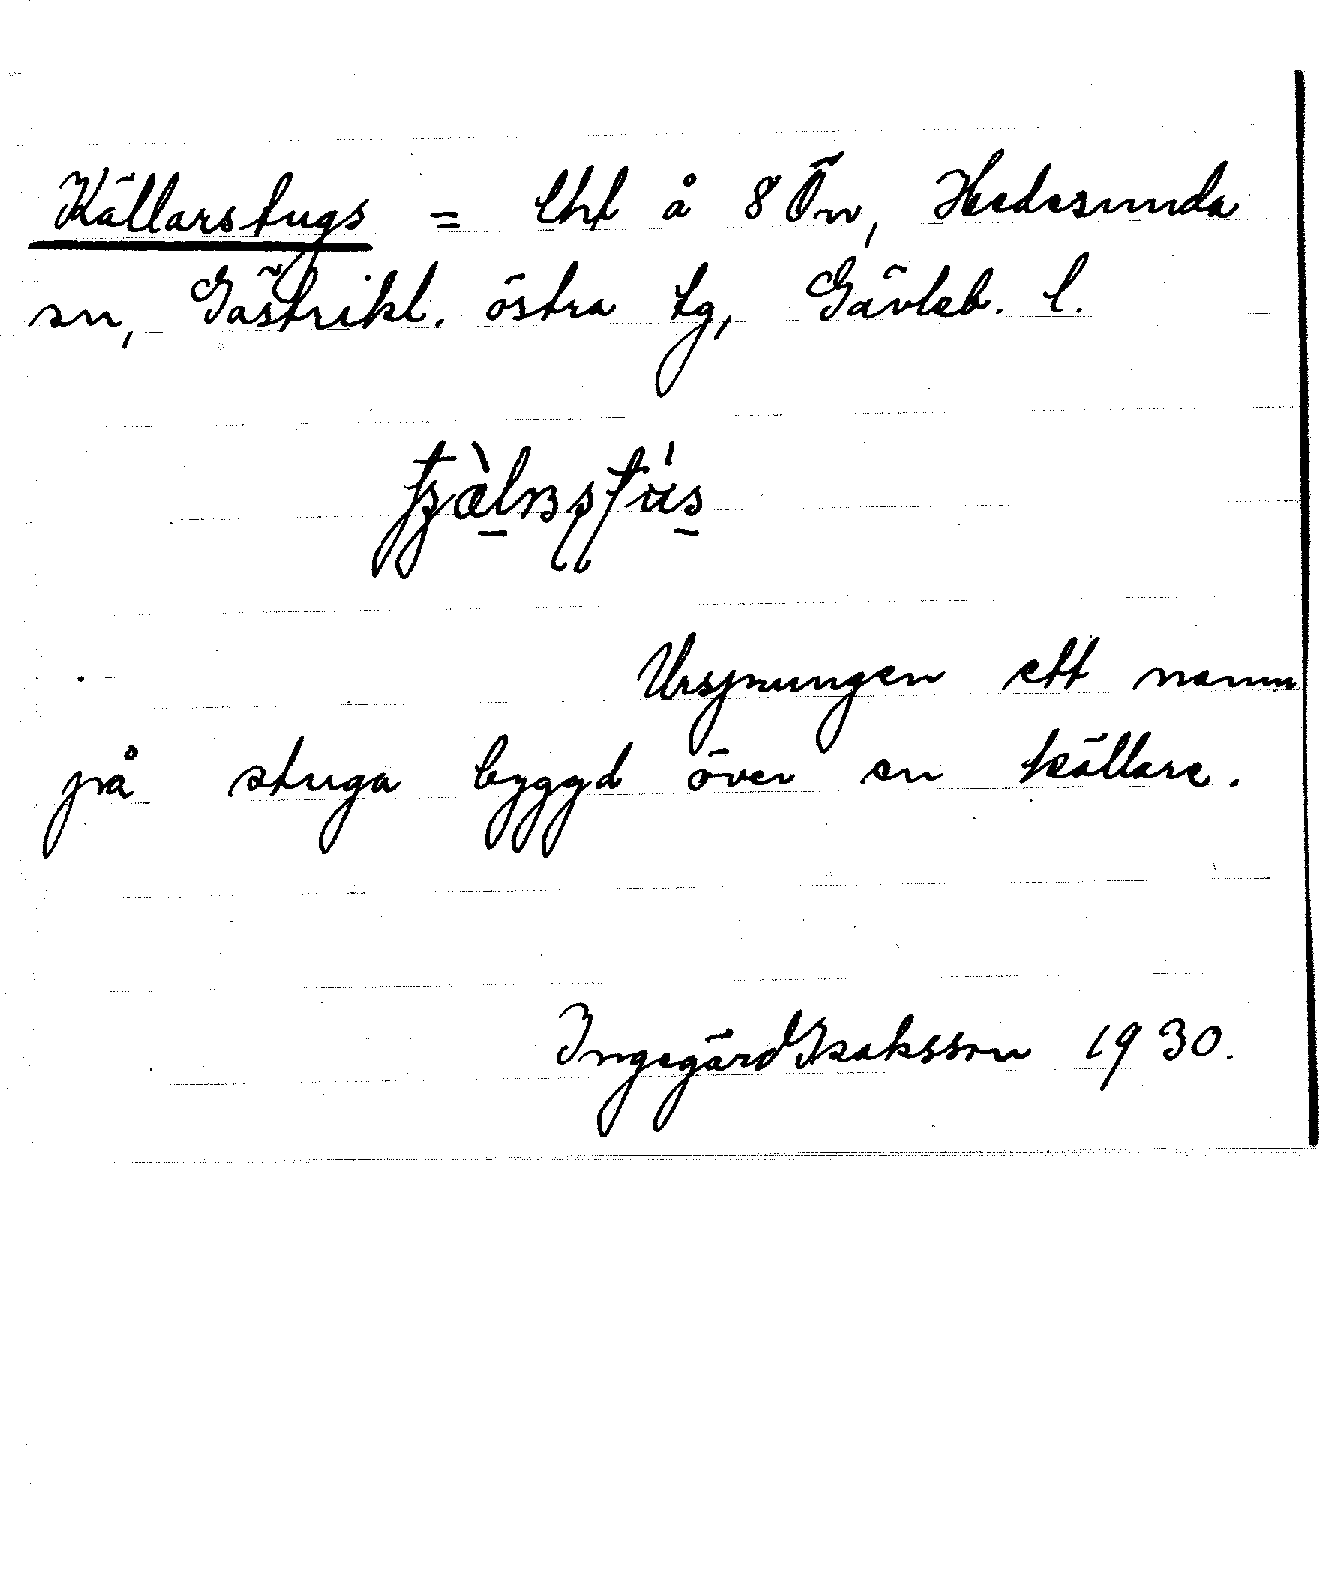 Källarstugs = lht å 8 Ön, Hedesunda
sn, Gästrikl. östra tg, Gävleb. l.
Ursprungen ett namn
på stuga byggd över en källare.
Ingegärd Isaksson 1930.